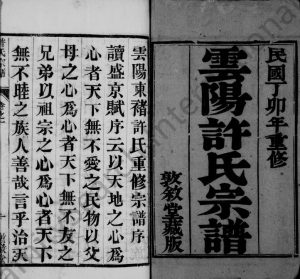 民國丁卯年重修
雲陽許氏宗譜
敦敘堂藏版
雲陽東禇許氏重修宗譜序
讀盛京賦序云以天地之心爲
心者天下無不愛之民物以父
母之心爲心者天下無不友之
兄弟以祖宗之心爲心者天下
無不睦之族人善哉言乎治天